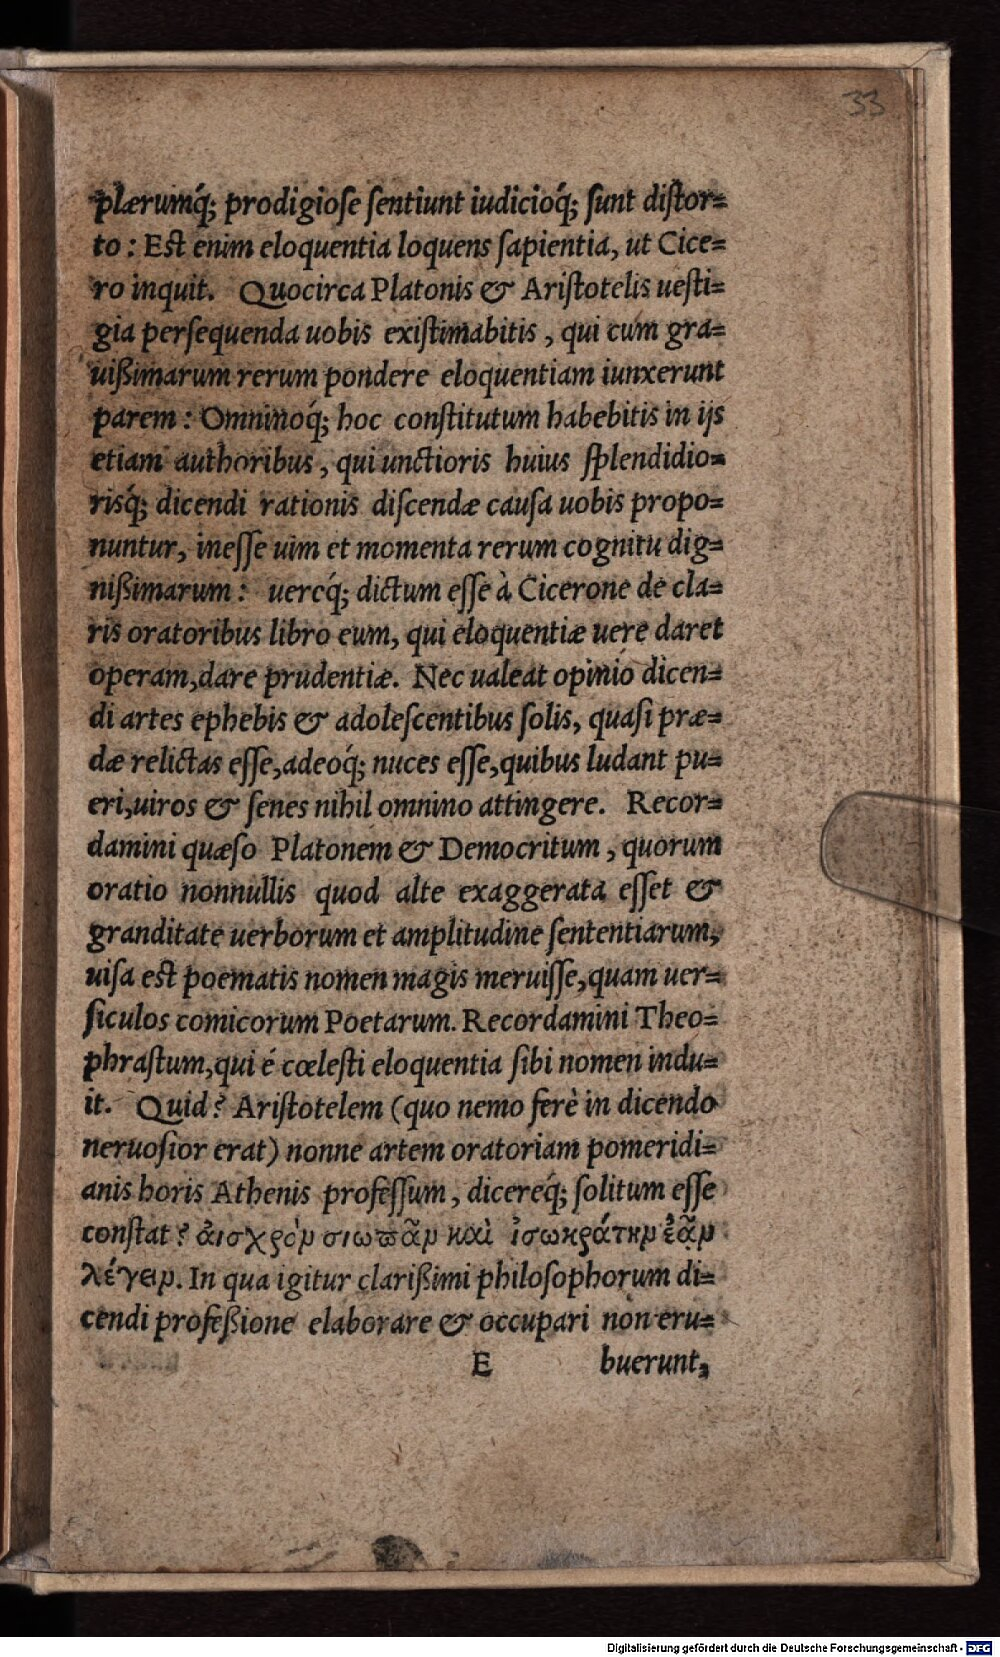 33
plærumq́; prodigiose sentiunt iudicioq́; sunt distor=
to: Est enim eloquentia loquens sapientia, ut Cice=
ro inquit. Quocirca Platonis & Aristotelis uesti=
gia persequenda uobis existimabitis, qui cum gra=
uißimarum rerum pondere eloquentiam iunxerunt
parem: Omninoq́; hoc constitutum habebitis in ijs
etiam authoribus, qui unctioris huius splendidio=
risq́; dicendi rationis discendæ causa uobis propo=
nuntur, inesse uim et momenta rerum cognitu dig=
nißimarum: uereq́; dictum esse à Cicerone de cla=
ris oratoribus libro eum, qui eloquentiæ uere daret
operam, dare prudentiæ. Nec ualeat opinio dicen=
di artes ephebis & adolescentibus solis, quasi præ=
dæ relictas esse, adeoq́; nuces esse, quibus ludant pu=
eri, uiros & senes nihil omnino attingere. Recor=
damini quæso Platonem & Democritum, quorum
oratio nonnullis quod alte exaggerata esset &
granditate uerborum et amplitudine sententiarum,
uisa est poematis nomen magis meruisse, quam uer=
siculos comicorum Poetarum. Recordamini Theo=
phrastum, qui é cœlesti eloquentia sibi nomen indu=
it. Quid? Aristotelem (quo nemo ferè in dicendo
neruosior erat) nonne artem oratoriam pomeridi=
anis horis Athenis professum, dicereq́; solitum esse
constat? ἀισχρὸν σιωπᾶν καὶ ἰσωκράτην ἐᾶν
λέγειν. In qua igitur clarißimi philosophorum di=
cendi profeßione elaborare & occupari non eru=
E buerunt,
Digitalisierung gefördert durch die Deutsche Forschungsgemeinschaft - DFG